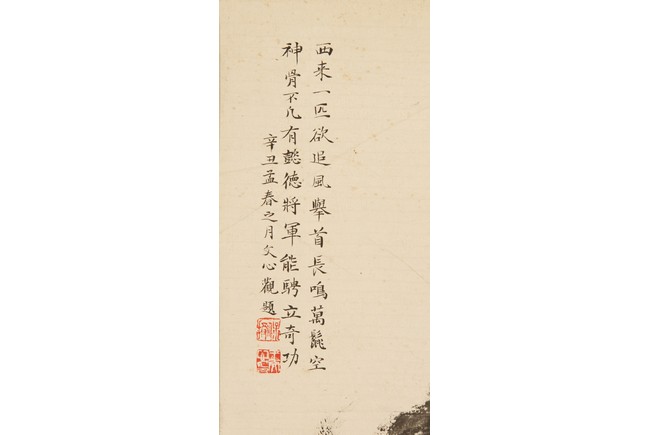 西来一匹欲追風舉首長鳴萬髭空
神骨不凡有懿德將軍能騁立奇功
辛丑孟春之月文心觀題